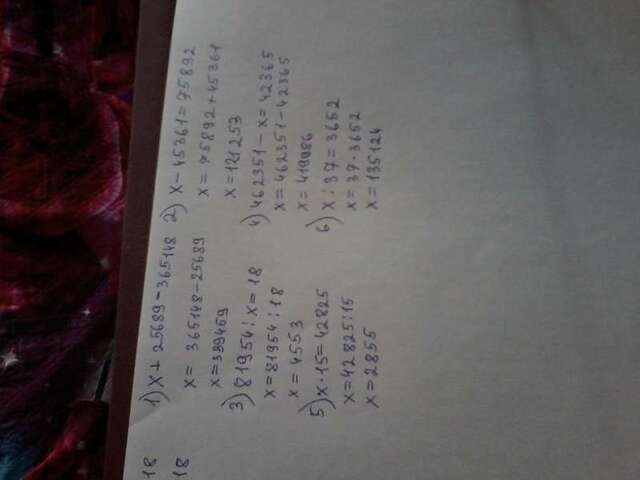 18
18
1) x + 25689 - 365148
x = 365148 - 25689
x = 339459
2) x - 45361 = 75892
x = 75892 + 45361
x = 121253
3) 81954 : x = 18
x = 81954 : 18
x = 4553
4) 462351 - x = 42365
x = 462351 - 42365
x = 419986
5) x · 15 = 42825
x = 42825 : 15
x = 2855
6) x : 37 = 3652
x = 37 · 3652
x = 135124